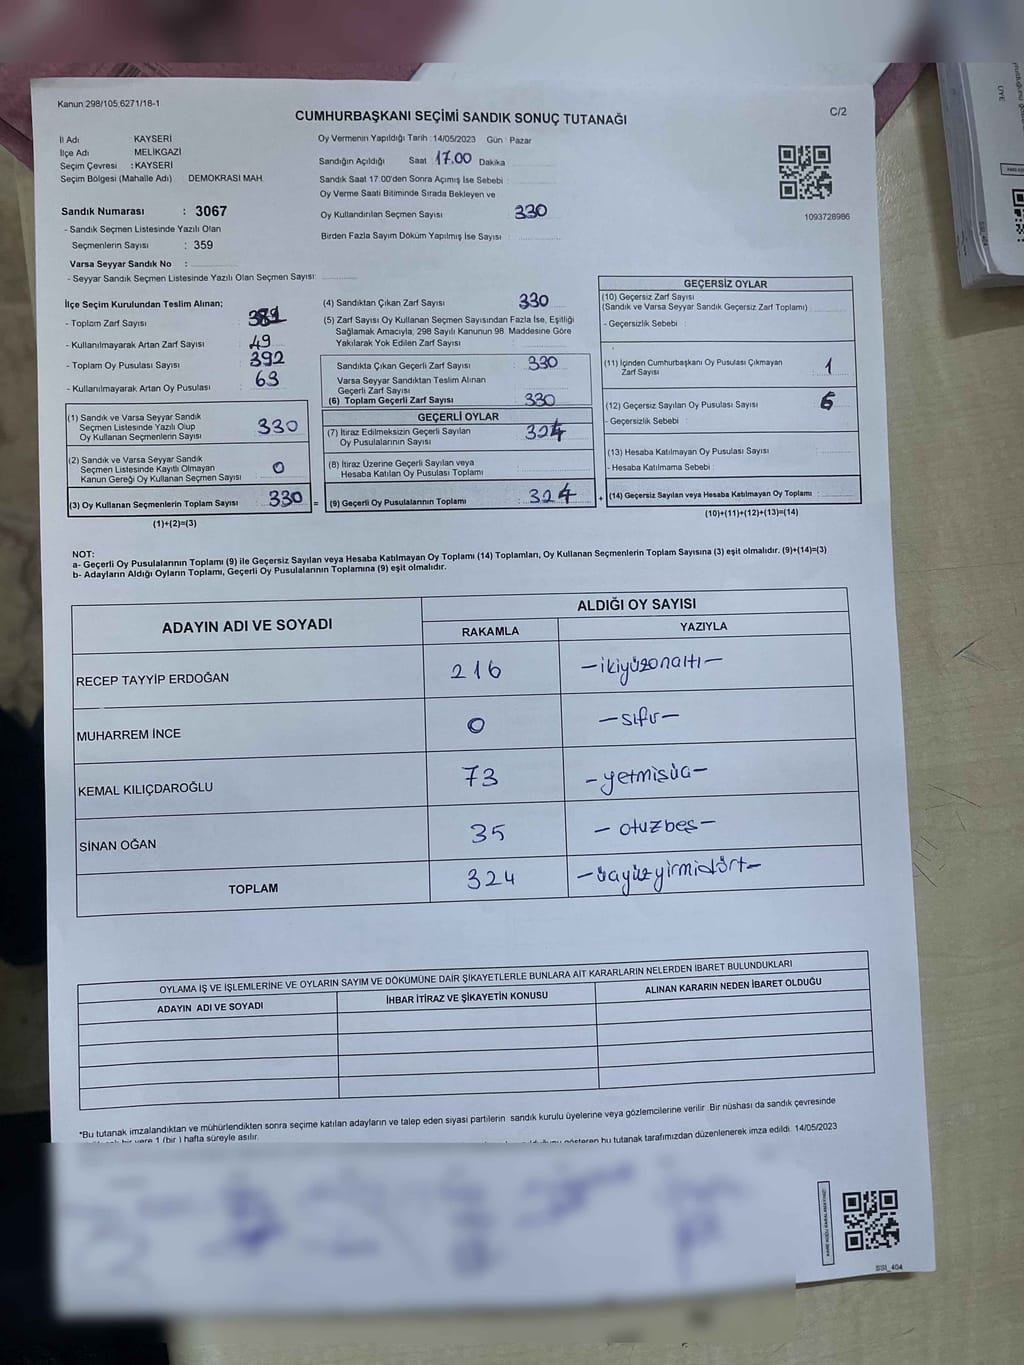 Kanun 298/105,6271/18-1
CUMHURBAŞKANI SEÇİMİ SANDIK SONUÇ TUTANAĞI
C/2
İl Adı KAYSERİ
İlçe Adı MELİKGAZİ
Seçim Çevresi : KAYSERİ
Seçim Bölgesi (Mahalle Adı) DEMOKRASİ MAH.
Sandık Numarası : 3067
- Sandık Seçmen Listesinde Yazılı Olan
Seçmenlerin Sayısı : 359
Varsa Seyyar Sandık No :
- Seyyar Sandık Seçmen Listesinde Yazılı Olan Seçmen Sayısı:
Oy Vermenin Yapıldığı Tarih : 14/05/2023 Gün : Pazar
Sandığın Açıldığı Saat 17.00 Dakika
Sandık Saat 17:00'den Sonra Açımış İse Sebebi :
Oy Verme Saati Bitiminde Sırada Bekleyen ve
Oy Kullandırılan Seçmen Sayısı 330
Birden Fazla Sayım Döküm Yapılmış İse Sayısı :
1093728986
İlçe Seçim Kurulundan Teslim Alınan;
- Toplam Zarf Sayısı
- Kullanılmayarak Artan Zarf Sayısı 49
- Toplam Oy Pusulası Sayısı 392
- Kullanılmayarak Artan Oy Pusulası 63
(1) Sandık ve Varsa Seyyar Sandık
Seçmen Listesinde Yazılı Olup
Oy Kullanan Seçmenlerin Sayısı 330
(2) Sandık ve Varsa Seyyar Sandık
Seçmen Listesinde Kayıtlı Olmayan
Kanun Gereği Oy Kullanan Seçmen Sayısı 0
(3) Oy Kullanan Seçmenlerin Toplam Sayısı 330 =
(1)+(2)=(3)
(4) Sandıktan Çıkan Zarf Sayısı 330
(5) Zarf Sayısı Oy Kullanan Seçmen Sayısından Fazla İse, Eşitliği
Sağlamak Amacıyla; 298 Sayılı Kanunun 98. Maddesine Göre
Yakılarak Yok Edilen Zarf Sayısı :
Sandıkta Çıkan Geçerli Zarf Sayısı : 330
Varsa Seyyar Sandıktan Teslim Alınan
Geçerli Zarf Sayısı
(6) Toplam Geçerli Zarf Sayısı 330
GEÇERLİ OYLAR
(7) İtiraz Edilmeksizin Geçerli Sayılan
Oy Pusulalarının Sayısı : 324
(8) İtiraz Üzerine Geçerli Sayılan veya
Hesaba Katılan Oy Pusulası Toplamı :
(9) Geçerli Oy Pusulalarının Toplamı : 324 +
GEÇERSİZ OYLAR
(10) Geçersiz Zarf Sayısı
(Sandık ve Varsa Seyyar Sandık Geçersiz Zarf Toplamı)
- Geçersizlik Sebebi :
(11) İçinden Cumhurbaşkanı Oy Pusulası Çıkmayan
Zarf Sayısı 1
(12) Geçersiz Sayılan Oy Pusulası Sayısı 6
- Geçersizlik Sebebi :
(13) Hesaba Katılmayan Oy Pusulası Sayısı
- Hesaba Katılmama Sebebi :
(14) Geçersiz Sayılan veya Hesaba Katılmayan Oy Toplamı :
(10)+(11)+(12)+(13)=(14)
NOT:
a- Geçerli Oy Pusulalarının Toplamı (9) ile Geçersiz Sayılan veya Hesaba Katılmayan Oy Toplamı (14) Toplamları, Oy Kullanan Seçmenlerin Toplam Sayısına (3) eşit olmalıdır. (9)+(14)=(3)
b- Adayların Aldığı Oyların Toplamı, Geçerli Oy Pusulalarının Toplamına (9) eşit olmalıdır.
ADAYIN ADI VE SOYADI ALDIĞI OY SAYISI
RAKAMLA YAZIYLA
RECEP TAYYİP ERDOĞAN 216 -ikiyüzonaltı-
MUHARREM İNCE 0 -sıfır-
KEMAL KILIÇDAROĞLU 73 -yetmişüç-
SİNAN OĞAN 35 -otuzbeş-
TOPLAM 324 -üçyüzyirmidört-
OYLAMA İŞ VE İŞLEMLERİNE VE OYLARIN SAYIM VE DÖKÜMÜNE DAİR ŞİKAYETLERLE BUNLARA AİT KARARLARIN NELERDEN İBARET BULUNDUKLARI
ADAYIN ADI VE SOYADI İHBAR İTİRAZ VE ŞİKAYETİN KONUSU ALINAN KARARIN NEDEN İBARET OLDUĞU
*Bu tutanak imzalandıktan ve mühürlendikten sonra seçime katılan adayların ve talep eden siyasi partilerin sandık kurulu üyelerine veya gözlemcilerine verilir. Bir nüshası da sandık çevresinde
1 (bir) hafta süreyle asılır.
gösteren bu tutanak tarafımızdan düzenlenerek imza edildi. 14/05/2023
SSI_404
ÜYE